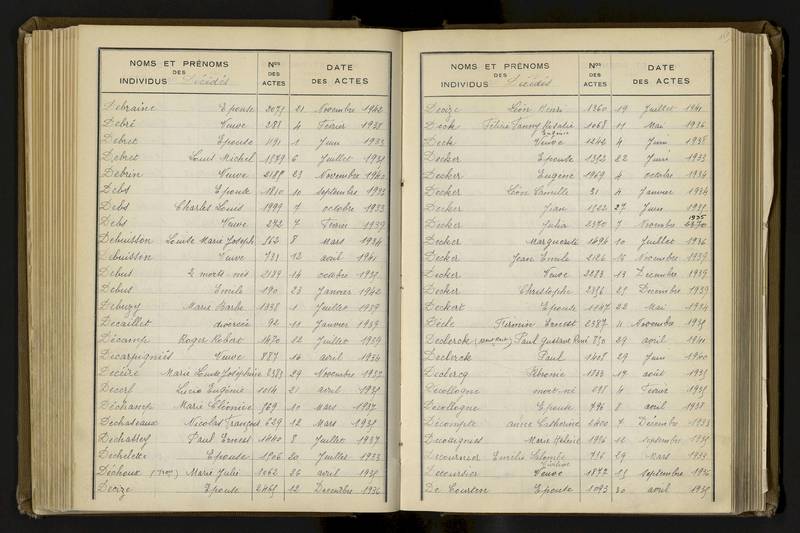 NOMS ET PRÉNOMS DES INDIVIDUS Décédés Nos DES ACTES DATE DES ACTES
Debraine Epouse 2075 21 Novembre 1942
Debré Veuve 288 4 Février 1938
Debret Epouse 1191 1 Juin 1933
Debret Louis Michel 1579 6 Juillet 1935
Debrin Veuve 2189 23 Novembre 1940
Debs Epouse 1810 10 septembre 1933
Debs Charles Louis 1999 7 octobre 1933
Debs Veuve 272 7 Février 1939
Debuisson Louise Marie Joseph 562 8 Mars 1934
Debuisson Veuve 733 12 avril 1941
Debus 2 morts-nés 2189 14 octobre 1935
Debus Emile 190 23 Janvier 1942
Debuzy Marie Barbe 1338 1 Juillet 1939
Decaillet divorcée 92 11 Janvier 1939
Décamp Roger Robert 1470 22 Juillet 1939
Decarpignies Veuve 887 16 avril 1934
Marie Louise Joséphine 2383 29 Novembre 1937
Decerf Lucie Eugénie 1014 21 avril 1935
Déchamp Marie Cléonice 569 10 Mars 1937
Dechaseaux Nicolas François 629 12 Mars 1935
Déchatley Paul Ernest 1440 8 Juillet 1937
Dechelette Epouse 1506 20 Juillet 1933
Déchoux Marie Julie 1062 26 avril 1935
Decize Epouse 2465 12 Decembre 1936
NOMS ET PRÉNOMS DES INDIVIDUS Décédés Nos DES ACTES DATE DES ACTES
Decize Léon Henri 1360 19 Juillet 1941
Deck Félicie Fanny Rosalie Eugénie 1068 11 Mai 1936
Deck Veuve 1242 4 Juin 1938
Decker Epouse 1352 22 Juin 1933
Decker Eugène 1969 4 octobre 1934
Decker Léon Camille 31 4 Janvier 1934
Decker Jean 1502 27 Juin 1935
Decker Julia 2370 7 Novembre 1935
Decker Marguerite 1494 10 Juillet 1936
Decker Jean Emile 2126 16 Novembre 1939
Decker Veuve 2283 13 Decembre 1939
Decker Christophe 2356 25 Decembre 1939
Deckert Epouse 1147 22 Mai 1934
Dècle Firmin Ernest 2387 11 Novembre 1935
Declerck Paul Gustave René 850 29 avril 1941
Declerck Paul 1408 29 Juin 1940
Declercq 1833 17 août 1935
Decollogne mort-né 298 4 Février 1935
Decollogne Epouse 796 8 avril 1938
Decompte anne Catherine 2400 7 Décembre 1933
Marie Hélène 1986 12 septembre 1935
Decournier Emélie Colombe 736 29 Mars 1933
Decoursier Veuve 1872 15 Septembre 1936
De Courten Epouse 1093 30 avril 1935